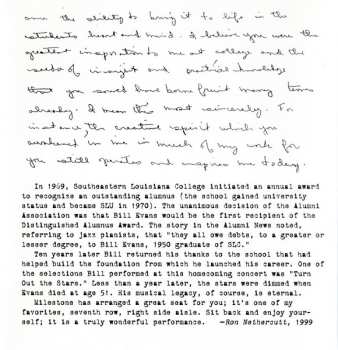 and the ability to bring it to life in the
student's heart and mind. I believe you were the
greatest inspiration to me at college and the
seeds of insight and practical knowledge
you sowed have borne fruit many times
already. I mean this most sincerely. For
instance, the creative spirit which you
awakened in me in much of my work for
you still operates and inspires me today.
In 1969, Southeastern Louisiana College initiated an annual award
to recognize an outstanding alumnus (the school gained university
status and became SLU in 1970). The unanimous decision of the Alumni
Association was that Bill Evans would be the first recipient of the
Distinguished Alumnus Award. The story in the Alumni News noted,
referring to jazz pianists, that "they all owe debts, to a greater or
lesser degree, to Bill Evans, 1950 graduate of SLC."
Ten years later Bill returned his thanks to the school that had
helped build the foundation from which he launched his career. One of
the selections Bill performed at this homecoming concert was "Turn
Out the Stars." Less than a year later, the stars were dimmed when
Evans died at age 51. His musical legacy, of course, is eternal.
Milestone has arranged a great seat for you; it's one of my
favorites, seventh row, right side aisle. Sit back and enjoy your-
self; it is a truly wonderful performance. —Ron Nethercutt, 1999